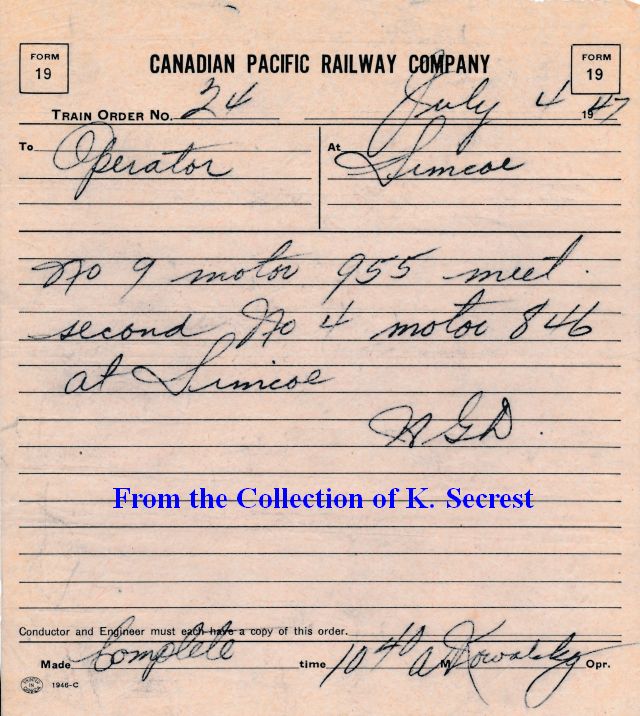 FORM 19
CANADIAN PACIFIC RAILWAY COMPANY
FORM 19
TRAIN ORDER NO. 24 July 4 1947
To Operator At Simcoe
No 9 motor 955 meet
second No 4 motor 846
at Simcoe
HGD.
From the Collection of K. Secrest
Conductor and Engineer must each have a copy of this order.
Made Complete time 10 40 a M Kowalsky Opr.
1946-C